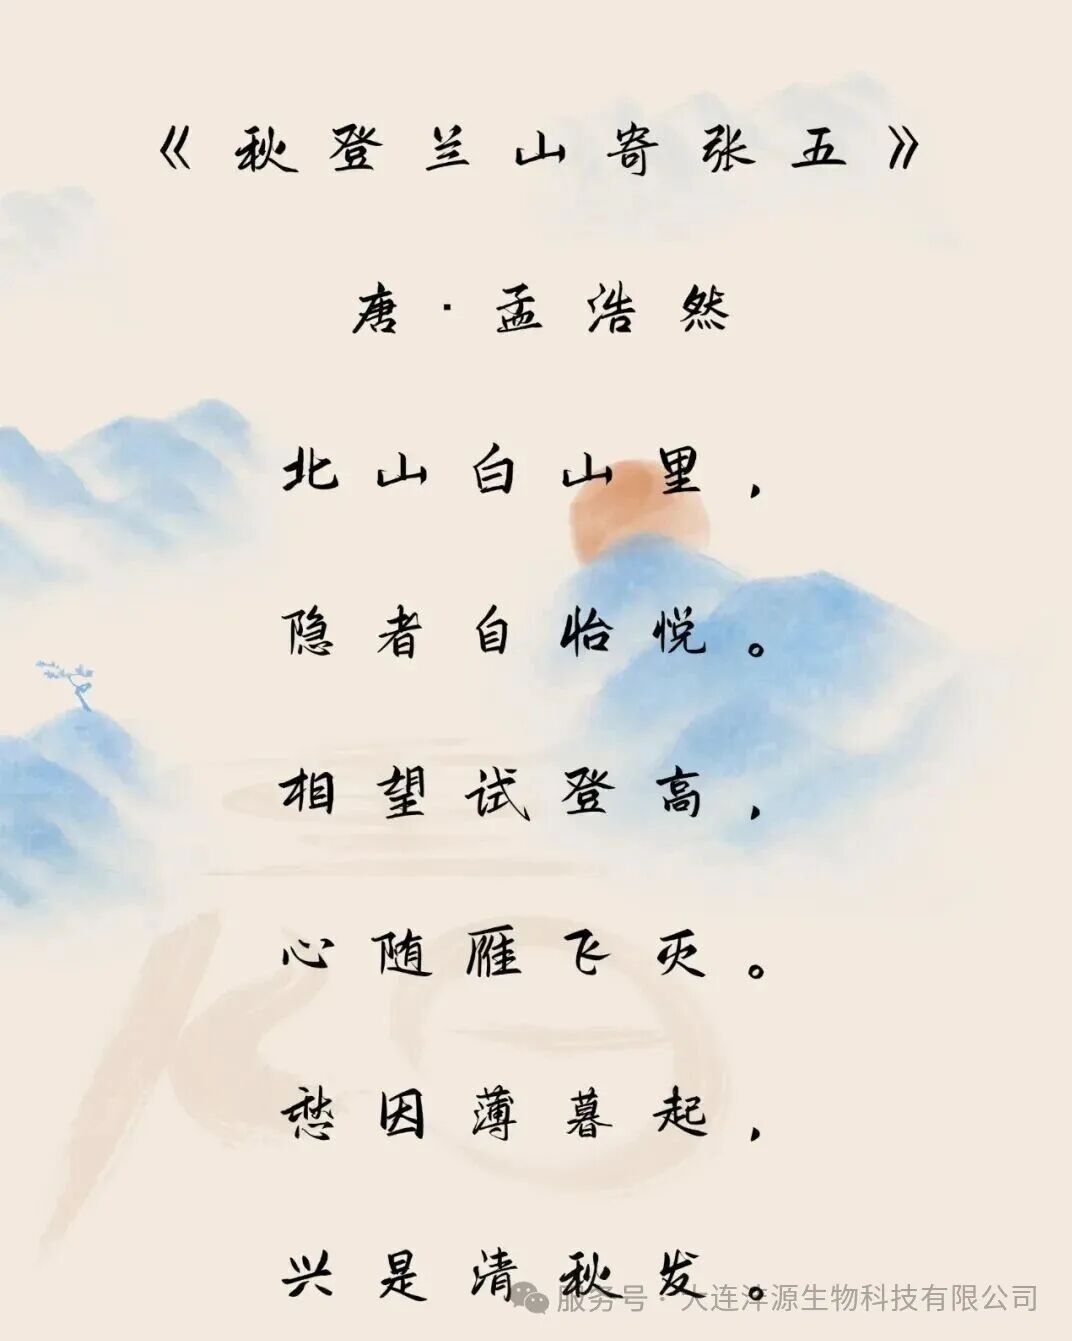 《秋登兰山寄张五》
唐·孟浩然
北山白山里，
隐者自怡悦。
相望试登高，
心随雁飞灭。
愁因薄暮起，
兴是清秋发。
服务号·大连沣源生物科技有限公司